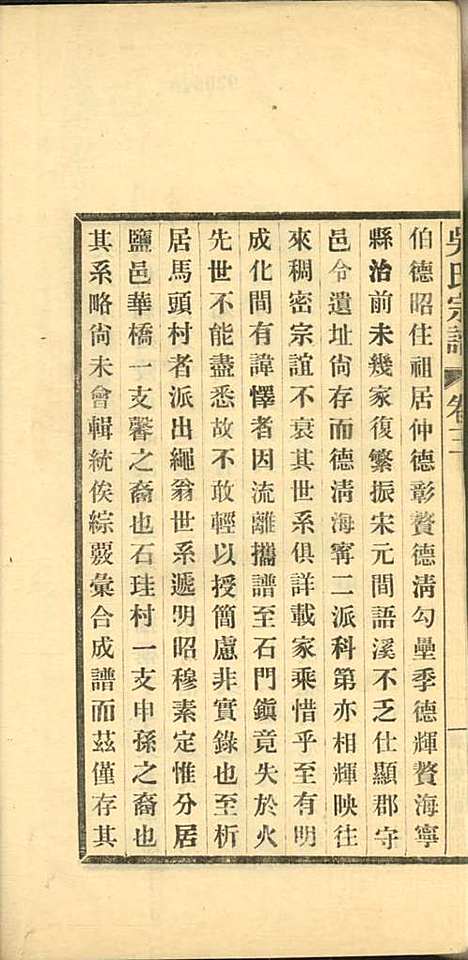 吳氏宗譜 卷三 一
伯德昭住祖居仲德彰贅德清勾壘季德輝贅海寧
縣治前未幾家復繁振宋元間語溪不乏仕顯郡守
邑令遺址尙存而德淸海寗二派科第亦相輝映往
來稠密宗誼不衰其世系俱詳載家乘惜乎至有明
成化間有諱懌者因流離攜譜至石門鎭竟失於火
先世不能盡悉故不敢輕以授簡慮非實錄也至析
居馬頭村者派出繩翁世系遞明昭穆素定惟分居
鹽邑華橋一支馨之裔也石珪村一支申孫之裔也
其系略尙未會輯統俟綜覈彙合成譜而茲僅存其